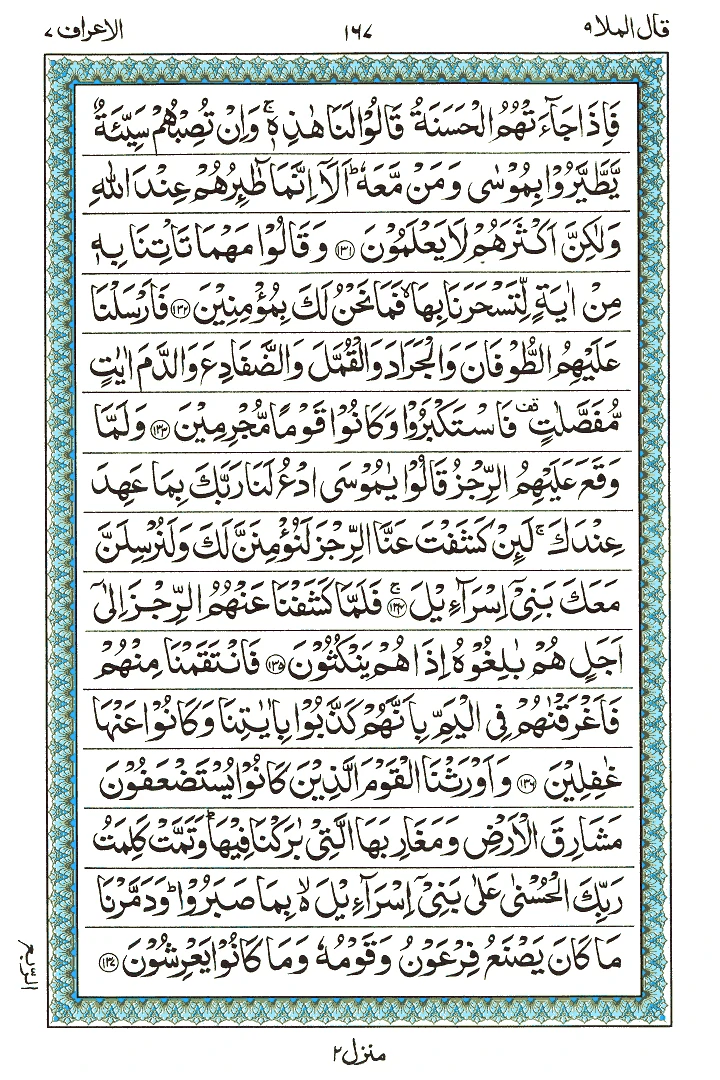 قال الملا ٩ ١٦٧ الاعراف ٧
فَاِذَا جَآءَتْهُمُ الْحَسَنَةُ قَالُوْا لَنَا هٰذِهٖ ۚ وَاِنْ تُصِبْهُمْ سَيِّئَةٌ
يَّطَّيَّرُوْا بِمُوْسٰى وَمَنْ مَّعَهٗ ؕ اَلَاۤ اِنَّمَا طٰٓئِرُهُمْ عِنْدَ اللّٰهِ
وَلٰكِنَّ اَكْثَرَهُمْ لَا يَعْلَمُوْنَ ﴿۱۳۱﴾ وَقَالُوْا مَهْمَا تَاْتِنَا بِهٖ
مِنْ اٰيَةٍ لِّتَسْحَرَنَا بِهَا ۙ فَمَا نَحْنُ لَكَ بِمُؤْمِنِيْنَ ﴿۱۳۲﴾ فَاَرْسَلْنَا
عَلَيْهِمُ الطُّوْفَانَ وَالْجَرَادَ وَالْقُمَّلَ وَالضَّفَادِعَ وَالدَّمَ اٰيٰتٍ
مُّفَصَّلٰتٍ قف فَاسْتَكْبَرُوْا وَكَانُوْا قَوْمًا مُّجْرِمِيْنَ ﴿۱۳۳﴾ وَلَمَّا
وَقَعَ عَلَيْهِمُ الرِّجْزُ قَالُوْا يٰمُوْسَى ادْعُ لَنَا رَبَّكَ بِمَا عَهِدَ
عِنْدَكَ ۚ لَئِنْ كَشَفْتَ عَنَّا الرِّجْزَ لَنُؤْمِنَنَّ لَكَ وَلَنُرْسِلَنَّ
مَعَكَ بَنِيْۤ اِسْرَآءِيْلَ ﴿۱۳۴﴾ ۚ فَلَمَّا كَشَفْنَا عَنْهُمُ الرِّجْزَ اِلٰۤى
اَجَلٍ هُمْ بٰلِغُوْهُ اِذَا هُمْ يَنْكُثُوْنَ ﴿۱۳۵﴾ فَانْتَقَمْنَا مِنْهُمْ
فَاَغْرَقْنٰهُمْ فِى الْيَمِّ بِاَنَّهُمْ كَذَّبُوْا بِاٰيٰتِنَا وَكَانُوْا عَنْهَا
غٰفِلِيْنَ ﴿۱۳۶﴾ وَاَوْرَثْنَا الْقَوْمَ الَّذِيْنَ كَانُوْا يُسْتَضْعَفُوْنَ
مَشَارِقَ الْاَرْضِ وَمَغَارِبَهَا الَّتِيْ بٰرَكْنَا فِيْهَا ؕ وَتَمَّتْ كَلِمَتُ
رَبِّكَ الْحُسْنٰى عَلٰى بَنِيْۤ اِسْرَآءِيْلَ ۙ بِمَا صَبَرُوْا ؕ وَدَمَّرْنَا
مَا كَانَ يَصْنَعُ فِرْعَوْنُ وَقَوْمُهٗ وَمَا كَانُوْا يَعْرِشُوْنَ ﴿۱۳۷﴾
الربع
منزل ٢